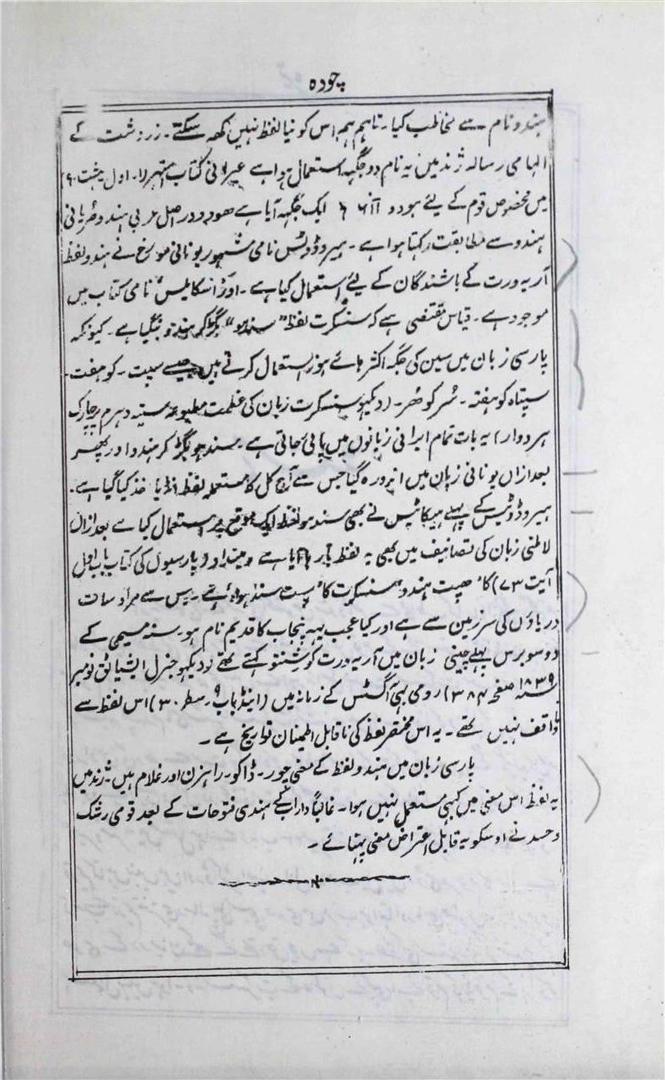 چودہ
ہندو نام سے مخاطب کیا۔ تاہم ہم اس کو نیا لفظ نہیں کہہ سکتے۔ زردشت کے
الہامی رسالہ ژند میں یہ نام دو جگہ استعمال ہوا ہے عبرانی کتاب اول
میں مخصوص قوم کے لیئے ہودو ایک جگہ آیا ہے ھودو دراصل عربی ہندو
ہندو سے مطابقت رکہتا ہوا ہے۔ ہیروڈوٹس نامی مشہور یونانی مورخ نے ہندو لفظ
آریہ ورت کے باشندگان کے لیئے استعمال کیا ہے۔ اور اسکایلیس نامی کتاب میں
موجود ہے۔ قیاس مقتضی ہے کہ سنسکرت لفظ "سندہو" بگڑ کر ہندو بنگیا ہے۔ کیونکہ
پارسی زبان میں سین کی جگہ اکثر ہائے ہوز استعمال کرتے ہیں جیسے سپت۔ کو ہفت۔
سپتاہ کو ہفتہ۔ سُر کو ھُر۔ (دیکہو سنسکرت زبان کی عظمت مطبوعہ ستیہ دہرم پرچارک
ہردوار) یہ بات تمام ایرانی زبانوں میں پائی جاتی ہے۔ سندہو بگڑ کر ہندو اور پھر
بعد ازاں یونانی زبان میں انڈو رہ گیا جس سے آج کل کا مستعملہ لفظ انڈیا اخذ کیا گیا ہے۔
ہیروڈوٹیس کے پہلے ہیکاٹیس نے بھی سندہو لفظ ایک موقع پر استعمال کیا ہے بعد ازاں
لاطنی زبان کی تصانیف میں بھی یہ لفظ بارہا آیا ہے وینداد (پارسیوں کی کتاب باب اول
آیت ۷۳) کا ھپت ہندو سنسکرت کا سپت سندہو ہے۔ جس سے مراد سات
دریاؤں کی سرزمین سے ہے اور کیا عجب یہہ پنجاب کا قدیم نام ہو۔ سنہ مسیحی کے
دو سو برس پہلے چینی زبان میں آریہ ورت کو شنتو کہتے تھے (دیکہو جنرل ایشیاٹک نومبر
۱۸۳۹ء صفحہ ۳۸۴) رومی بہی آگسٹس کے زمانہ میں (اینڈ باب ۹ سطر ۳۰) اس لفظ سے
ناواقف نہیں تھے۔ یہ اس مختصر لفظ کی ناقابل اطمینان تواریخ ہے۔
پارسی زبان میں ہندو لفظ کے معنی چور۔ ڈاکو۔ راہزن اور غلام ہیں۔ ژند میں
یہ لفظ اس معنی میں کبہی مستعمل نہیں ہوا۔ غالباً دارا کے ہندی فتوحات کے بعد قومی رشک
و حسد نے اوسکو یہ قابل اعتراض معنی پہنائے۔